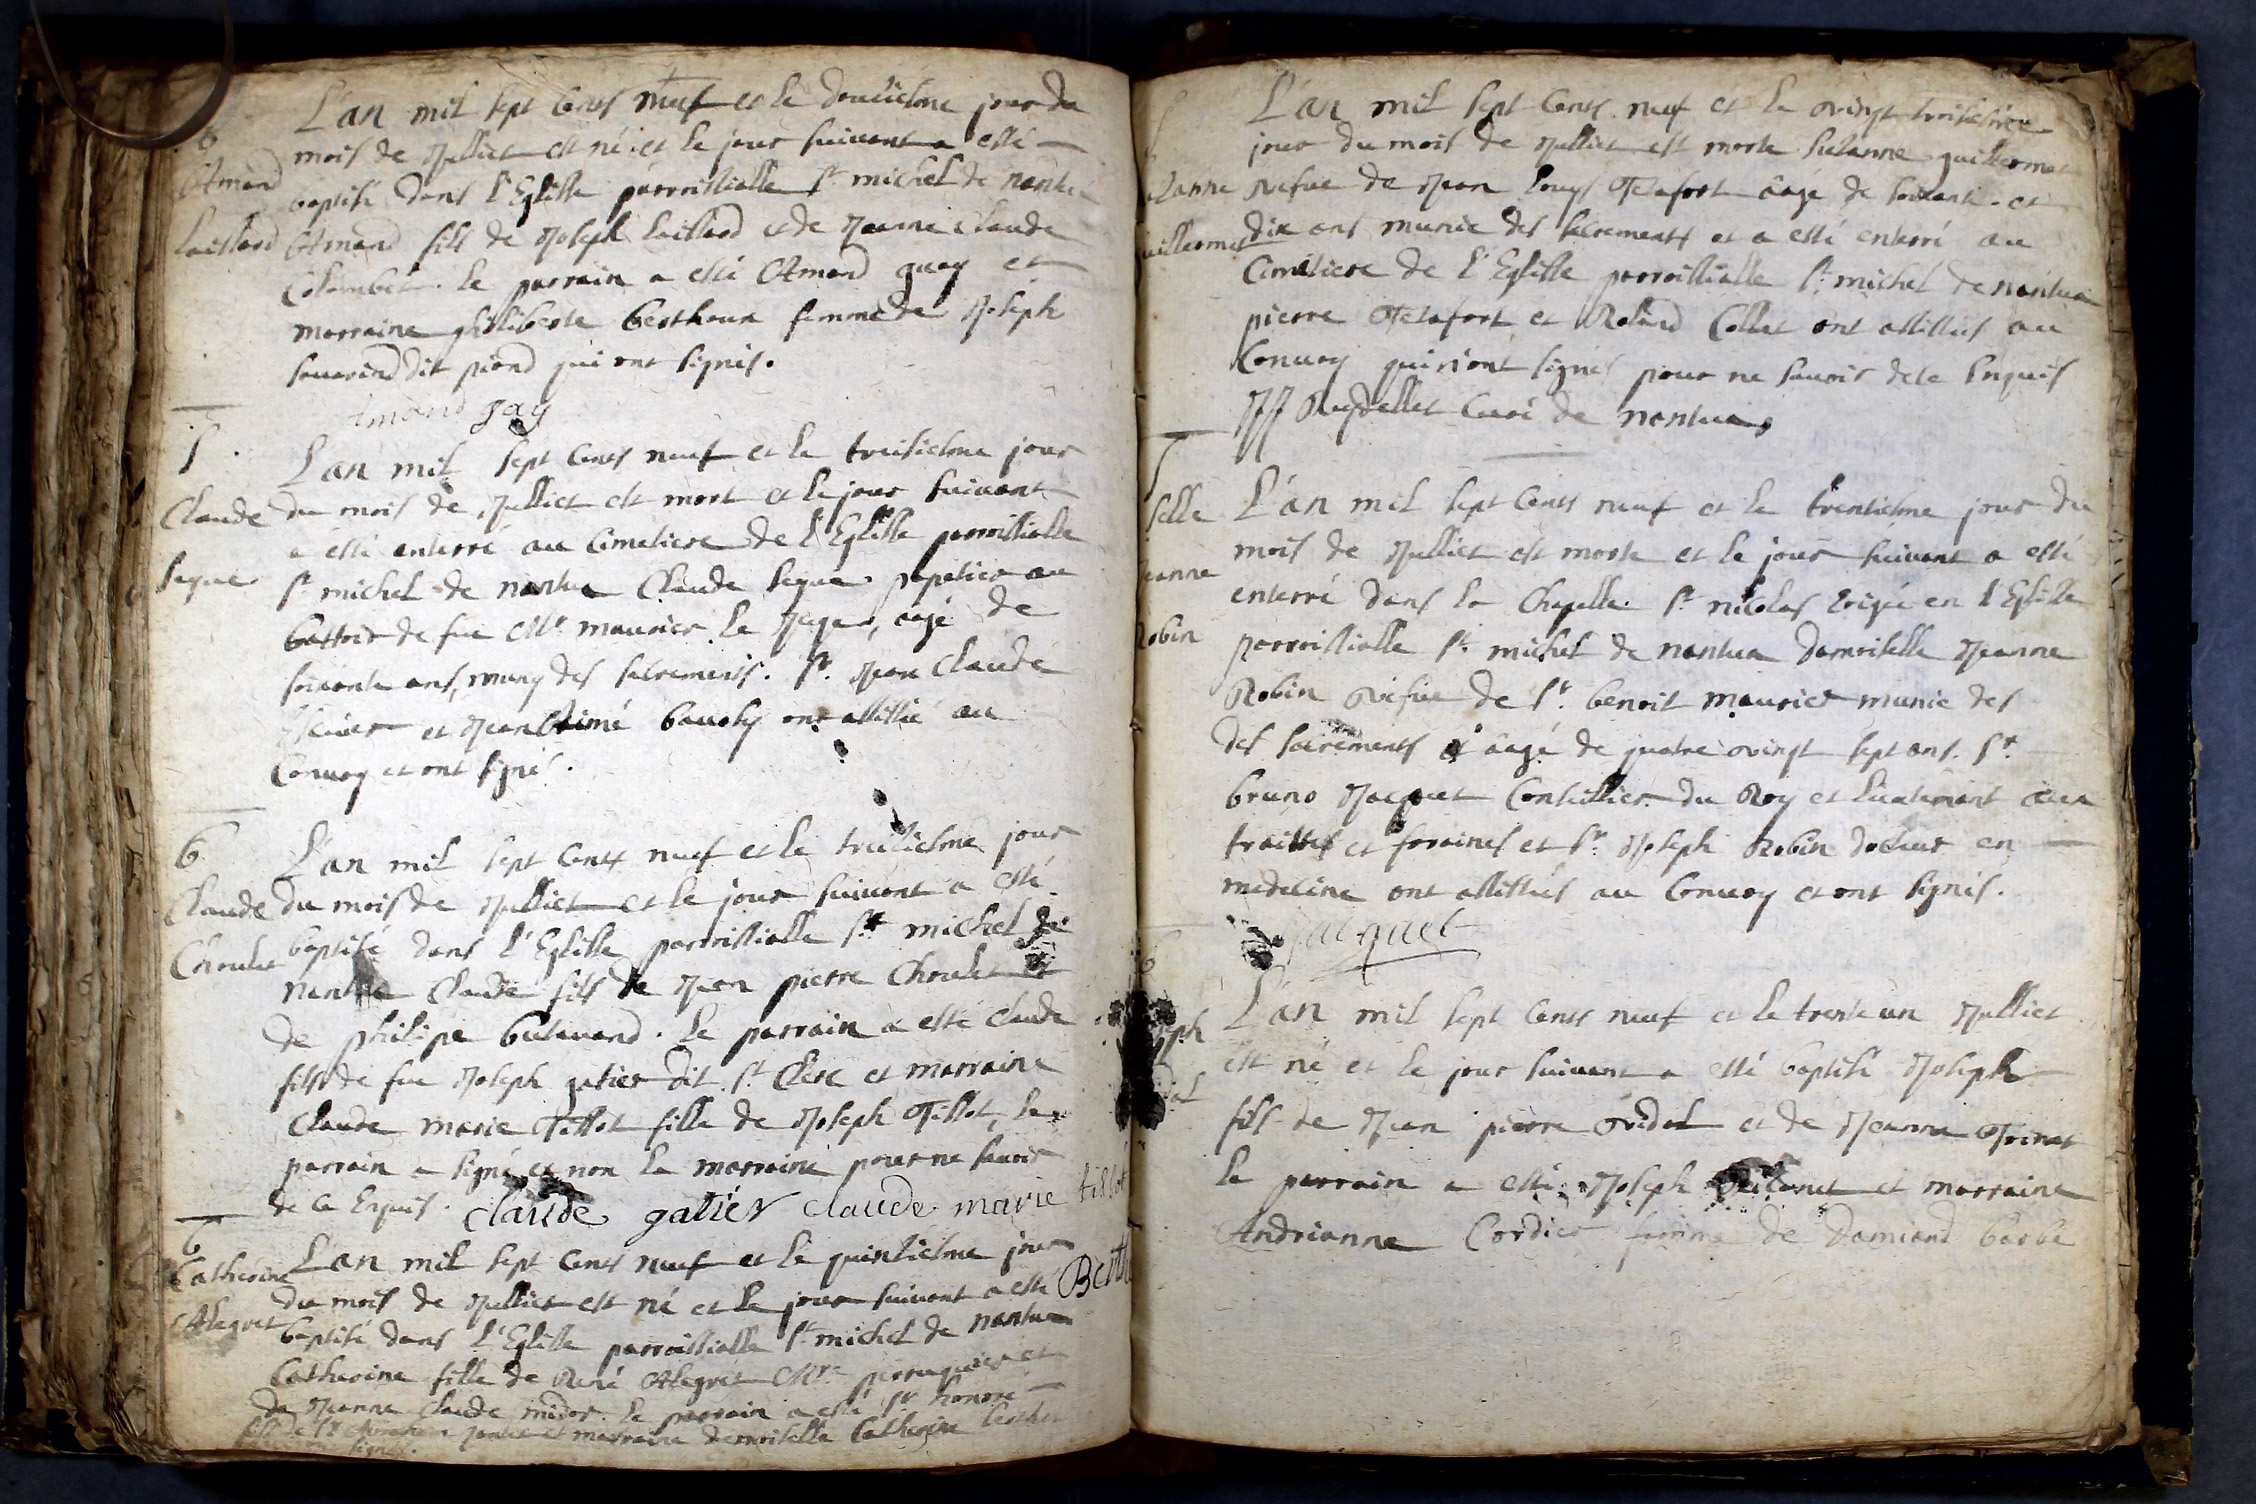 B
Amand
Laillard
L'an mil sept cents neuf et le douziesme jour du
mois de Juilliet est né et le jour suivant a esté
baptisé dans l'Eglisse parroissialle St michel de nantua
Amand fils de Joseph Laillard et de Jeanne Claude
Colombet. le parrain a esté Amand guay et
marraine philiberte berthoux femme de Joseph
dit qui ont signés.
Amand gay
S
Claude
Segue
L'an mil sept cents neuf et le treisiesme jour
du mois de Juilliet est mort et le jour suivant
a esté enterré au Cimetiere de l'Eglisse parroissialle
St michel de nantua Claude Segue papetier au
battoir de feu Mr maurier le Juge, âgé de
soixante ans, muny des sacrements. Sr Jean Claude
et Jean Aimé ont assistié au
Convoy et ont signé.
B
Claude
Choulet
L'an mil sept cents neuf et le treiziesme jour
du mois de Juilliet et le jour suivant a esté
baptisé dans l'Eglisse parroissialle St michel de
nantua Claude fils de Jean pierre Choulet et
de philipe . Le parrain a esté Claude
fils de feu Joseph gatier dit St Clere et marraine
Claude marie Tillot fille de Joseph Tillot, le
parrain a signé et non la marraine pour ne savoir
de ce Enquis. claude gatier claude marie tillot
B
Catherine
Alegret
L'an mil sept cents neuf et le quinziesme jour
du mois de Juilliet est né et le jour suivant a esté
baptisé dans l'Eglisse parroissialle St michel de nantua
Catherine fille de René Alegret Mre perruquier et
de Jeanne Claude midor. le parrain a esté Sr honoré
fils de Sr et marraine demoiselle Catherine
signés.
Suzanne
guillermet
L'an mil sept cents neuf et le vingt troisiesme
jour du mois de Juilliet est morte Suzanne guillermet
vefue de Jean Louys Tetafort âagé de soixante et
dix ans munie des sacrements et a esté enterré au
Cimetiere de l'Eglisse parroissialle St michel de nantua
pierre Tetafort et Roland Collet ont assistiés au
Convoy qui n'ont signés pour ne savoir de ce Enquis
JJ Ruydellet Curé de nantua
S
selle
Jeanne
Robin
L'an mil sept cents neuf et le trentiesme jour du
mois de Juilliet est morte et le jour suivant a esté
enterré dans la Chapelle St nicolas Erigée en l'Eglisse
parroissialle St michel de nantua damoiselle Jeanne
Robin vefue de Sr benoit maurier munie des
des sacrements âagé de quatre vingt sept ans. Sr
bruno Jacquet Conseillier du Roy et lieutenant aux
traittes et foraines et Sr Joseph Robin docteur en
medecine ont assistiés au Convoy et ont signés.
jacquet
B
L'an mil sept cents neuf et le trente un Juilliet
est né et le jour suivant a esté baptisé Joseph
fils de Jean pierre Vidal et de Jeanne
le parrain a esté Joseph et marraine
Andrianne Cordier femme de Damiand barbe